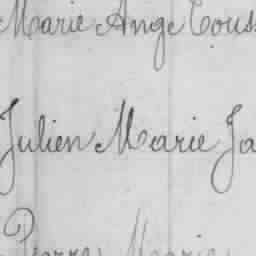 Marie Ange Touss
Julien Marie Ja
Pierre Marie